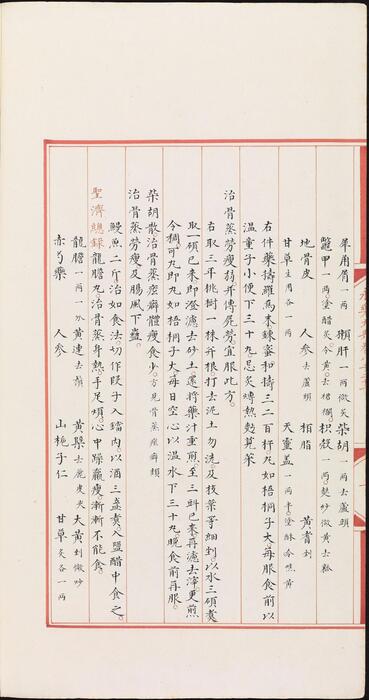 犀角屑一兩 獺肝一兩微炙 柴胡一兩去蘆頭
鼈甲一兩塗醋炙令黃去裙襴 枳殼一兩麩炒微黃去瓤
地骨皮 人參去蘆頭 梔脂 黃耆剉
甘草生用各一兩 天靈蓋一兩半塗酥令燋黃
右件藥擣羅爲末鍊蜜和擣三二百杵丸如梧桐子大每服食前以
温童子小便下三十丸忌炙煿熱麪莧菜
治骨蒸勞瘦弱并傳屍勞宜服此方
右取三年桃樹一株并根打去泥土勿洗及枝葉等細剉以水三碩煑
取一碩已來即澄濾去砂土還將藥汁重煎至三㪷已來再濾去滓更煎
令稠可丸即丸如梧桐子大每日空心以温水下三十丸晩食前再服
柴胡散治骨蒸痃癖體瘦食少方見骨蒸痃癖類
治骨蒸勞瘦及腸風下蟲
鰻魚二斤治如食法切作段子入鐺内以酒三盞煑入鹽醋中食之
聖濟總録龍膽丸治骨蒸身熱手足煩心中躁羸瘦漸漸不能食
龍膽一兩一分 黃連去鬚 黃蘗去麄皮炙 大黃剉微炒
赤芍藥 人參 山梔子仁 甘草炙各一兩